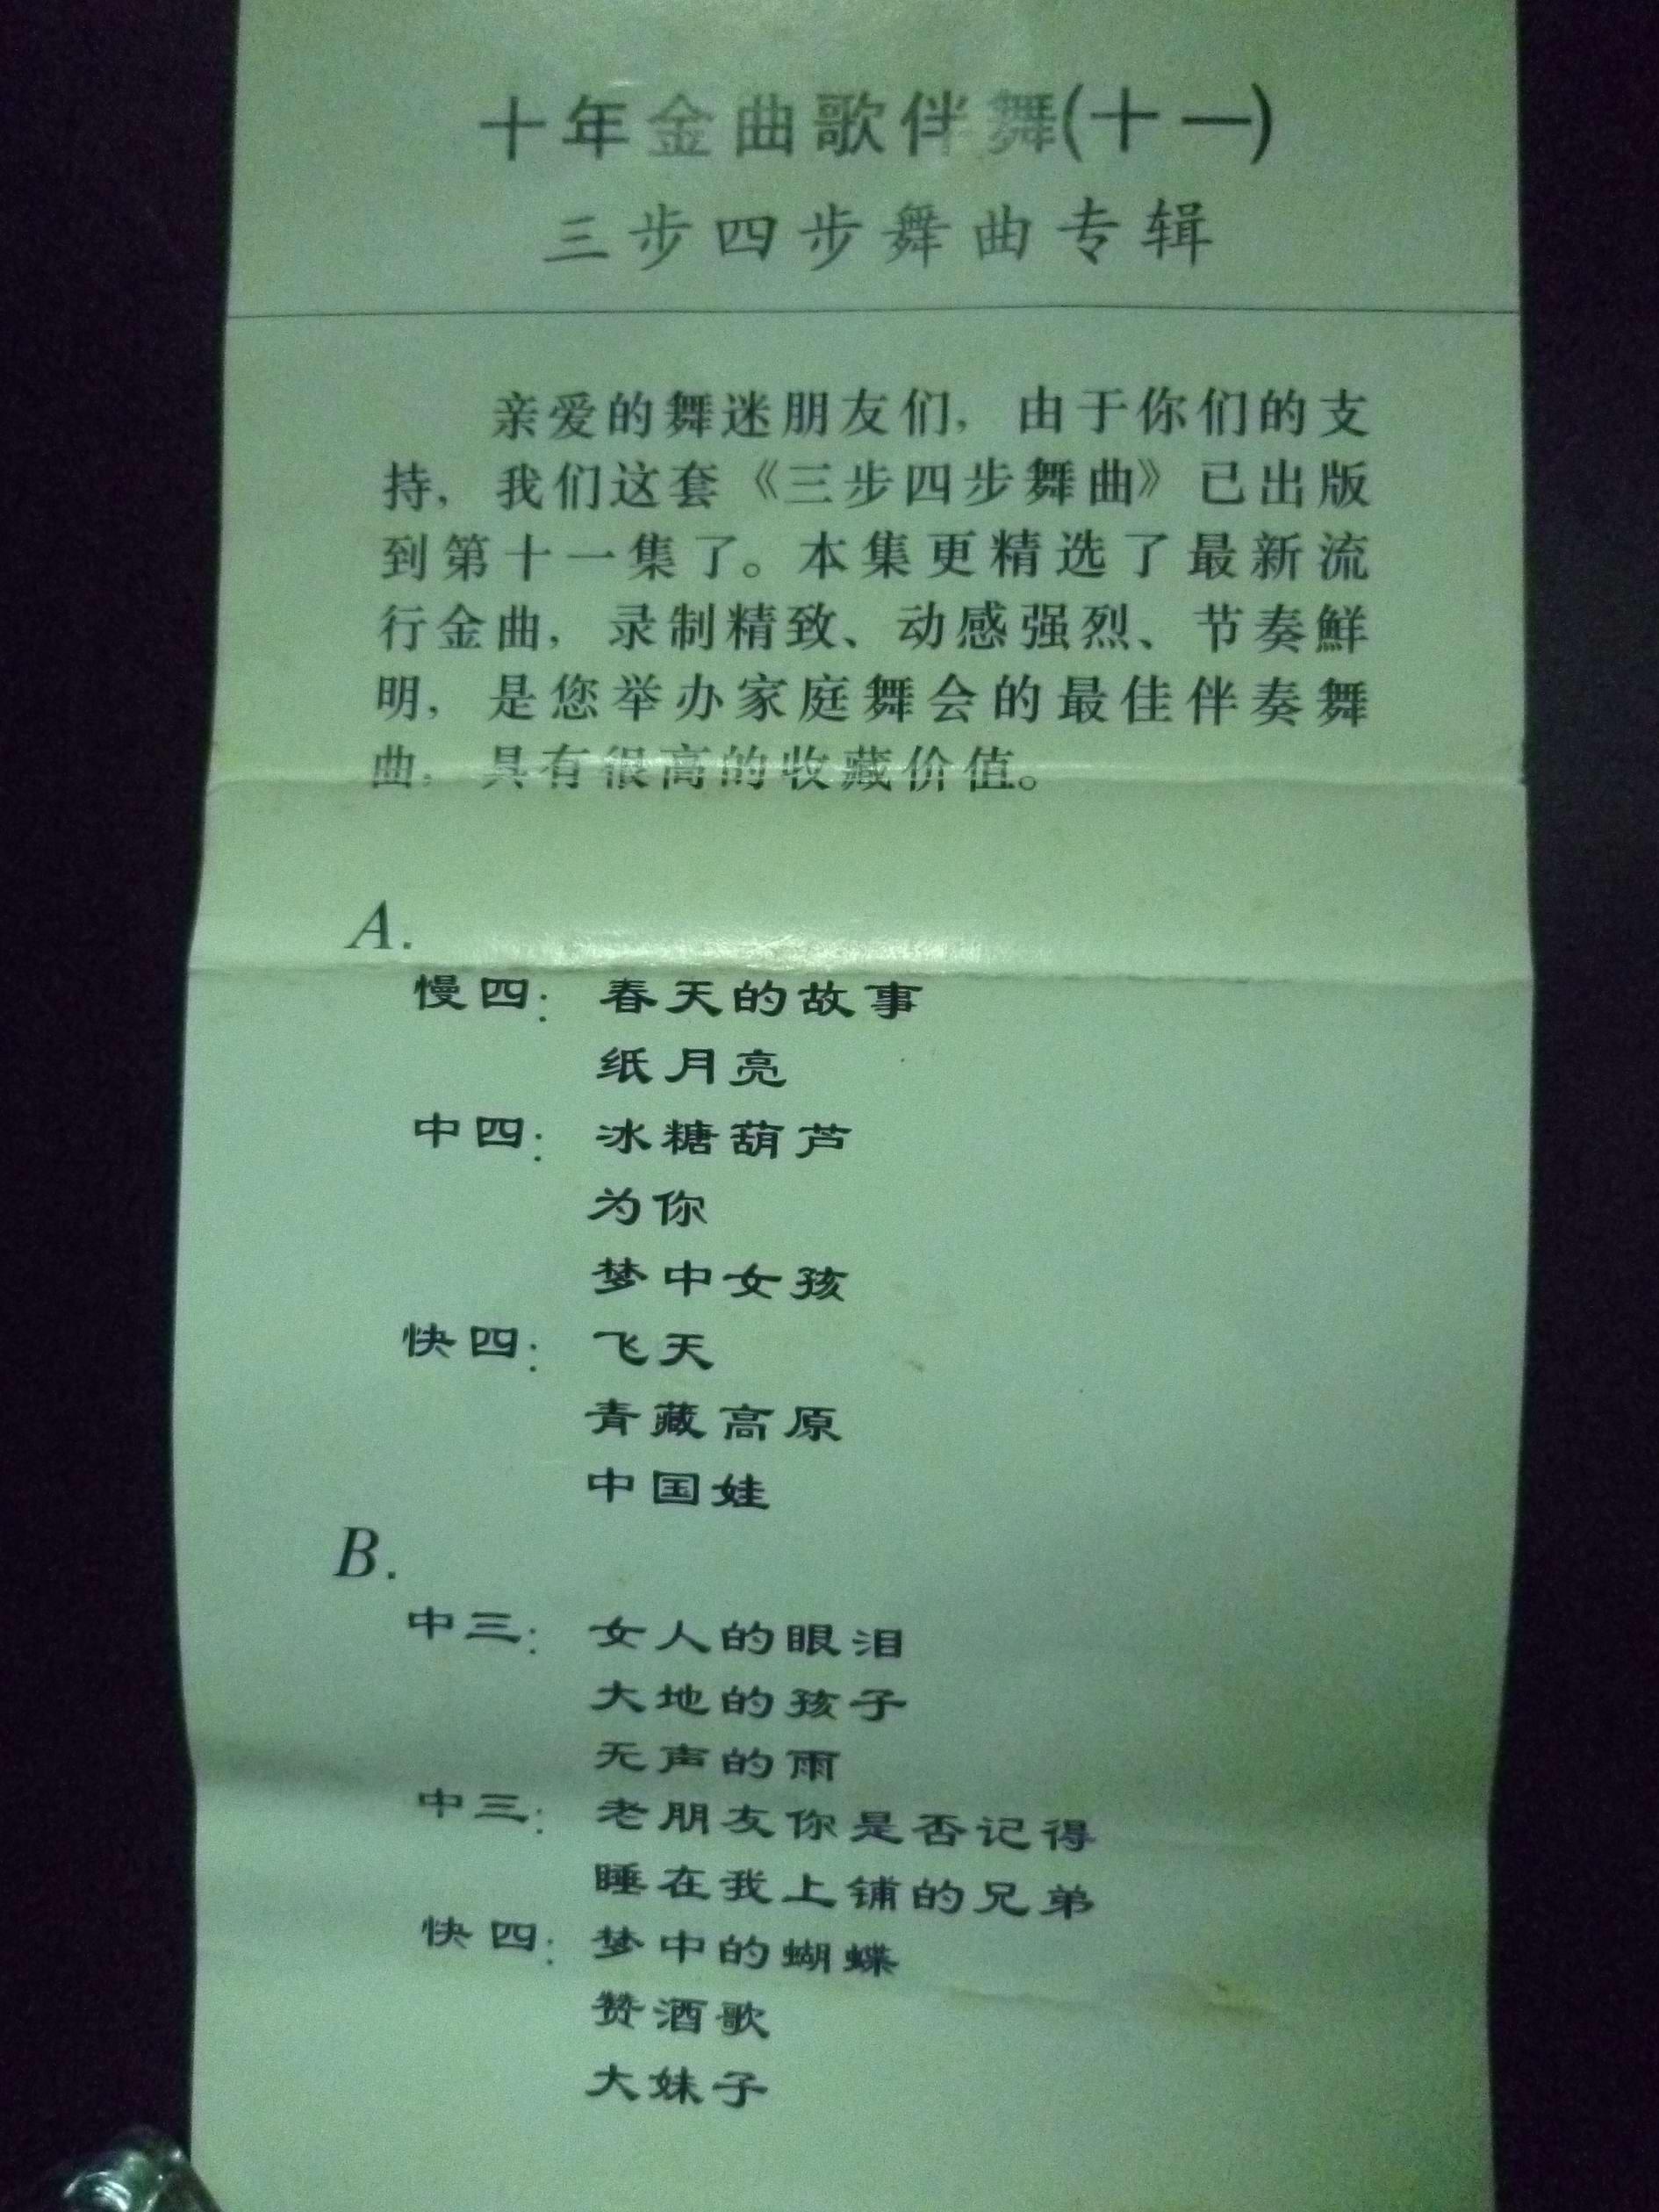 十年金曲歌伴舞(十一)
三步四步舞曲专辑
亲爱的舞迷朋友们，由于你们的支
持，我们这套《三步四步舞曲》已出版
到第十一集了。本集更精选了最新流
行金曲，录制精致、动感强烈、节奏鲜
明，是您举办家庭舞会的最佳伴奏舞
曲，具有很高的收藏价值。
A.
慢四：春天的故事
纸月亮
中四：冰糖葫芦
为你
梦中女孩
快四：飞天
青藏高原
中国娃
B.
中三：女人的眼泪
大地的孩子
无声的雨
中三：老朋友你是否记得
睡在我上铺的兄弟
快四：梦中的蝴蝶
赞酒歌
大妹子